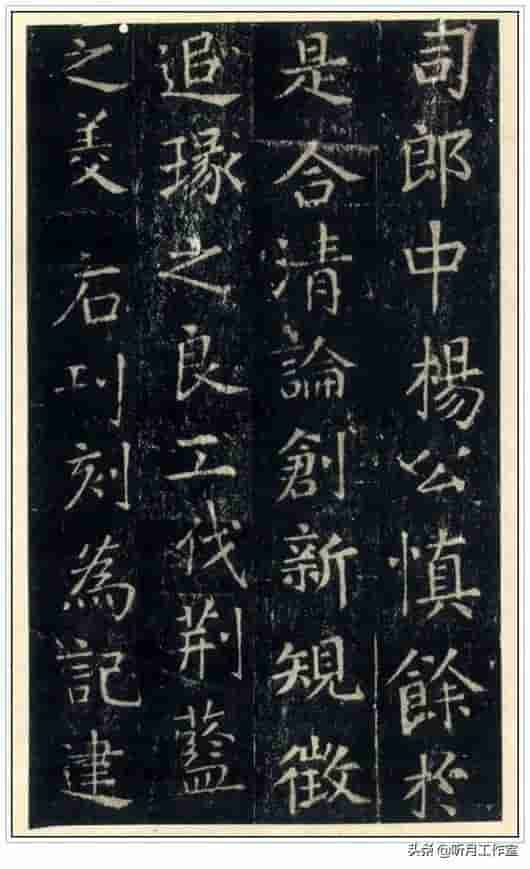 司郎中楊公慎餘於
是合清論創新規徵
追琢之良工伐荆藍
之美石刊刻為記建
头条 @听月工作室